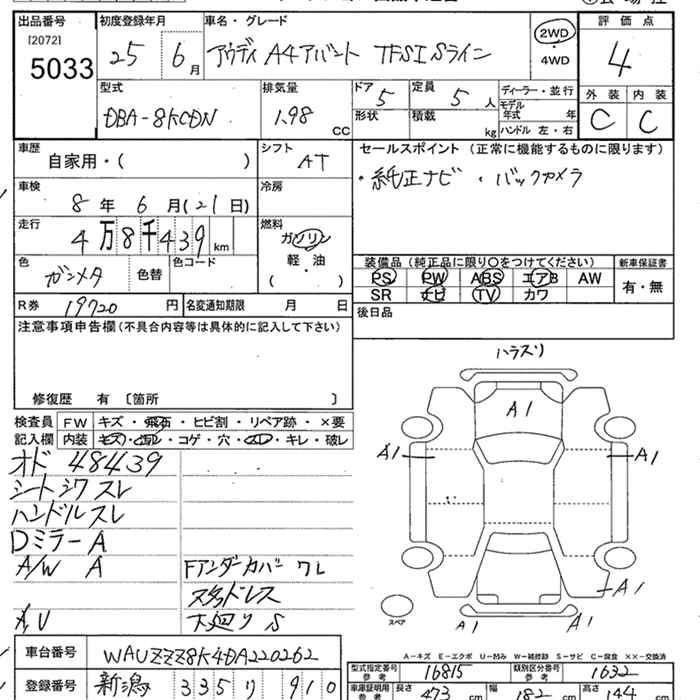 出品番号 初度登録年月 車名・グレード 評価点
[2072]
5033 25 6月 アウディ A4アバント TFSI Sライン 2WD ・ 4WD 4
型式 排気量 ドア 定員 ディーラー・並行 外装 内装
DBA-8KCDN 1.98 CC 5 5 人 モデル年式 年 C C
形状 積載 kg ハンドル 左・右
車歴 シフト セールスポイント (正常に機能するものに限ります)
自家用・( ) AT ・純正ナビ ・バックカメラ
車検 冷房
8 年 6 月 (21日)
走行 燃料
4万8千439km ガソリン
軽・油
( )
色 色コード 装備品(純正品に限り○をつけてください) 新車保証書
ガンメタ 色替 PS PW ABS エアB AW 有・無
SR ナビ TV カワ
R券 19720 円 名変通知期限 月 日 後日品
注意事項申告欄(不具合内容等は具体的に記入して下さい)
修復歴 有 〔箇所 〕
検査員 FW キズ・飛石・ヒビ割・リペア跡・×要
記入欄 内装 キズ・ヨゴレ・コゲ・穴・スレ・キレ・破レ
オド 484439
シートシワ スレ
ハンドルスレ
Dミラー A
A/W A Fアンダーカバー ワレ
スタッドレス
下廻り S
A1
A1 A1
A1
スペア A1 A1
A-キズ E-エクボ U-凹み W-補修跡 S-サビ C-腐食 ××-交換済
車台番号 WAUZZZ8K4DA220262
型式指定番号 参考 16815 類別区分番号 参考 1632
登録番号 新潟 335 り 910
車庫証明用 参考 長さ 473 cm 幅 182 cm 高さ 144 cm